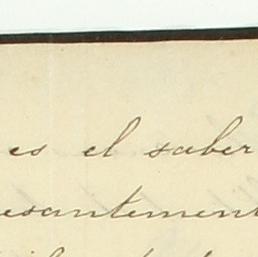 es el saber
esantement